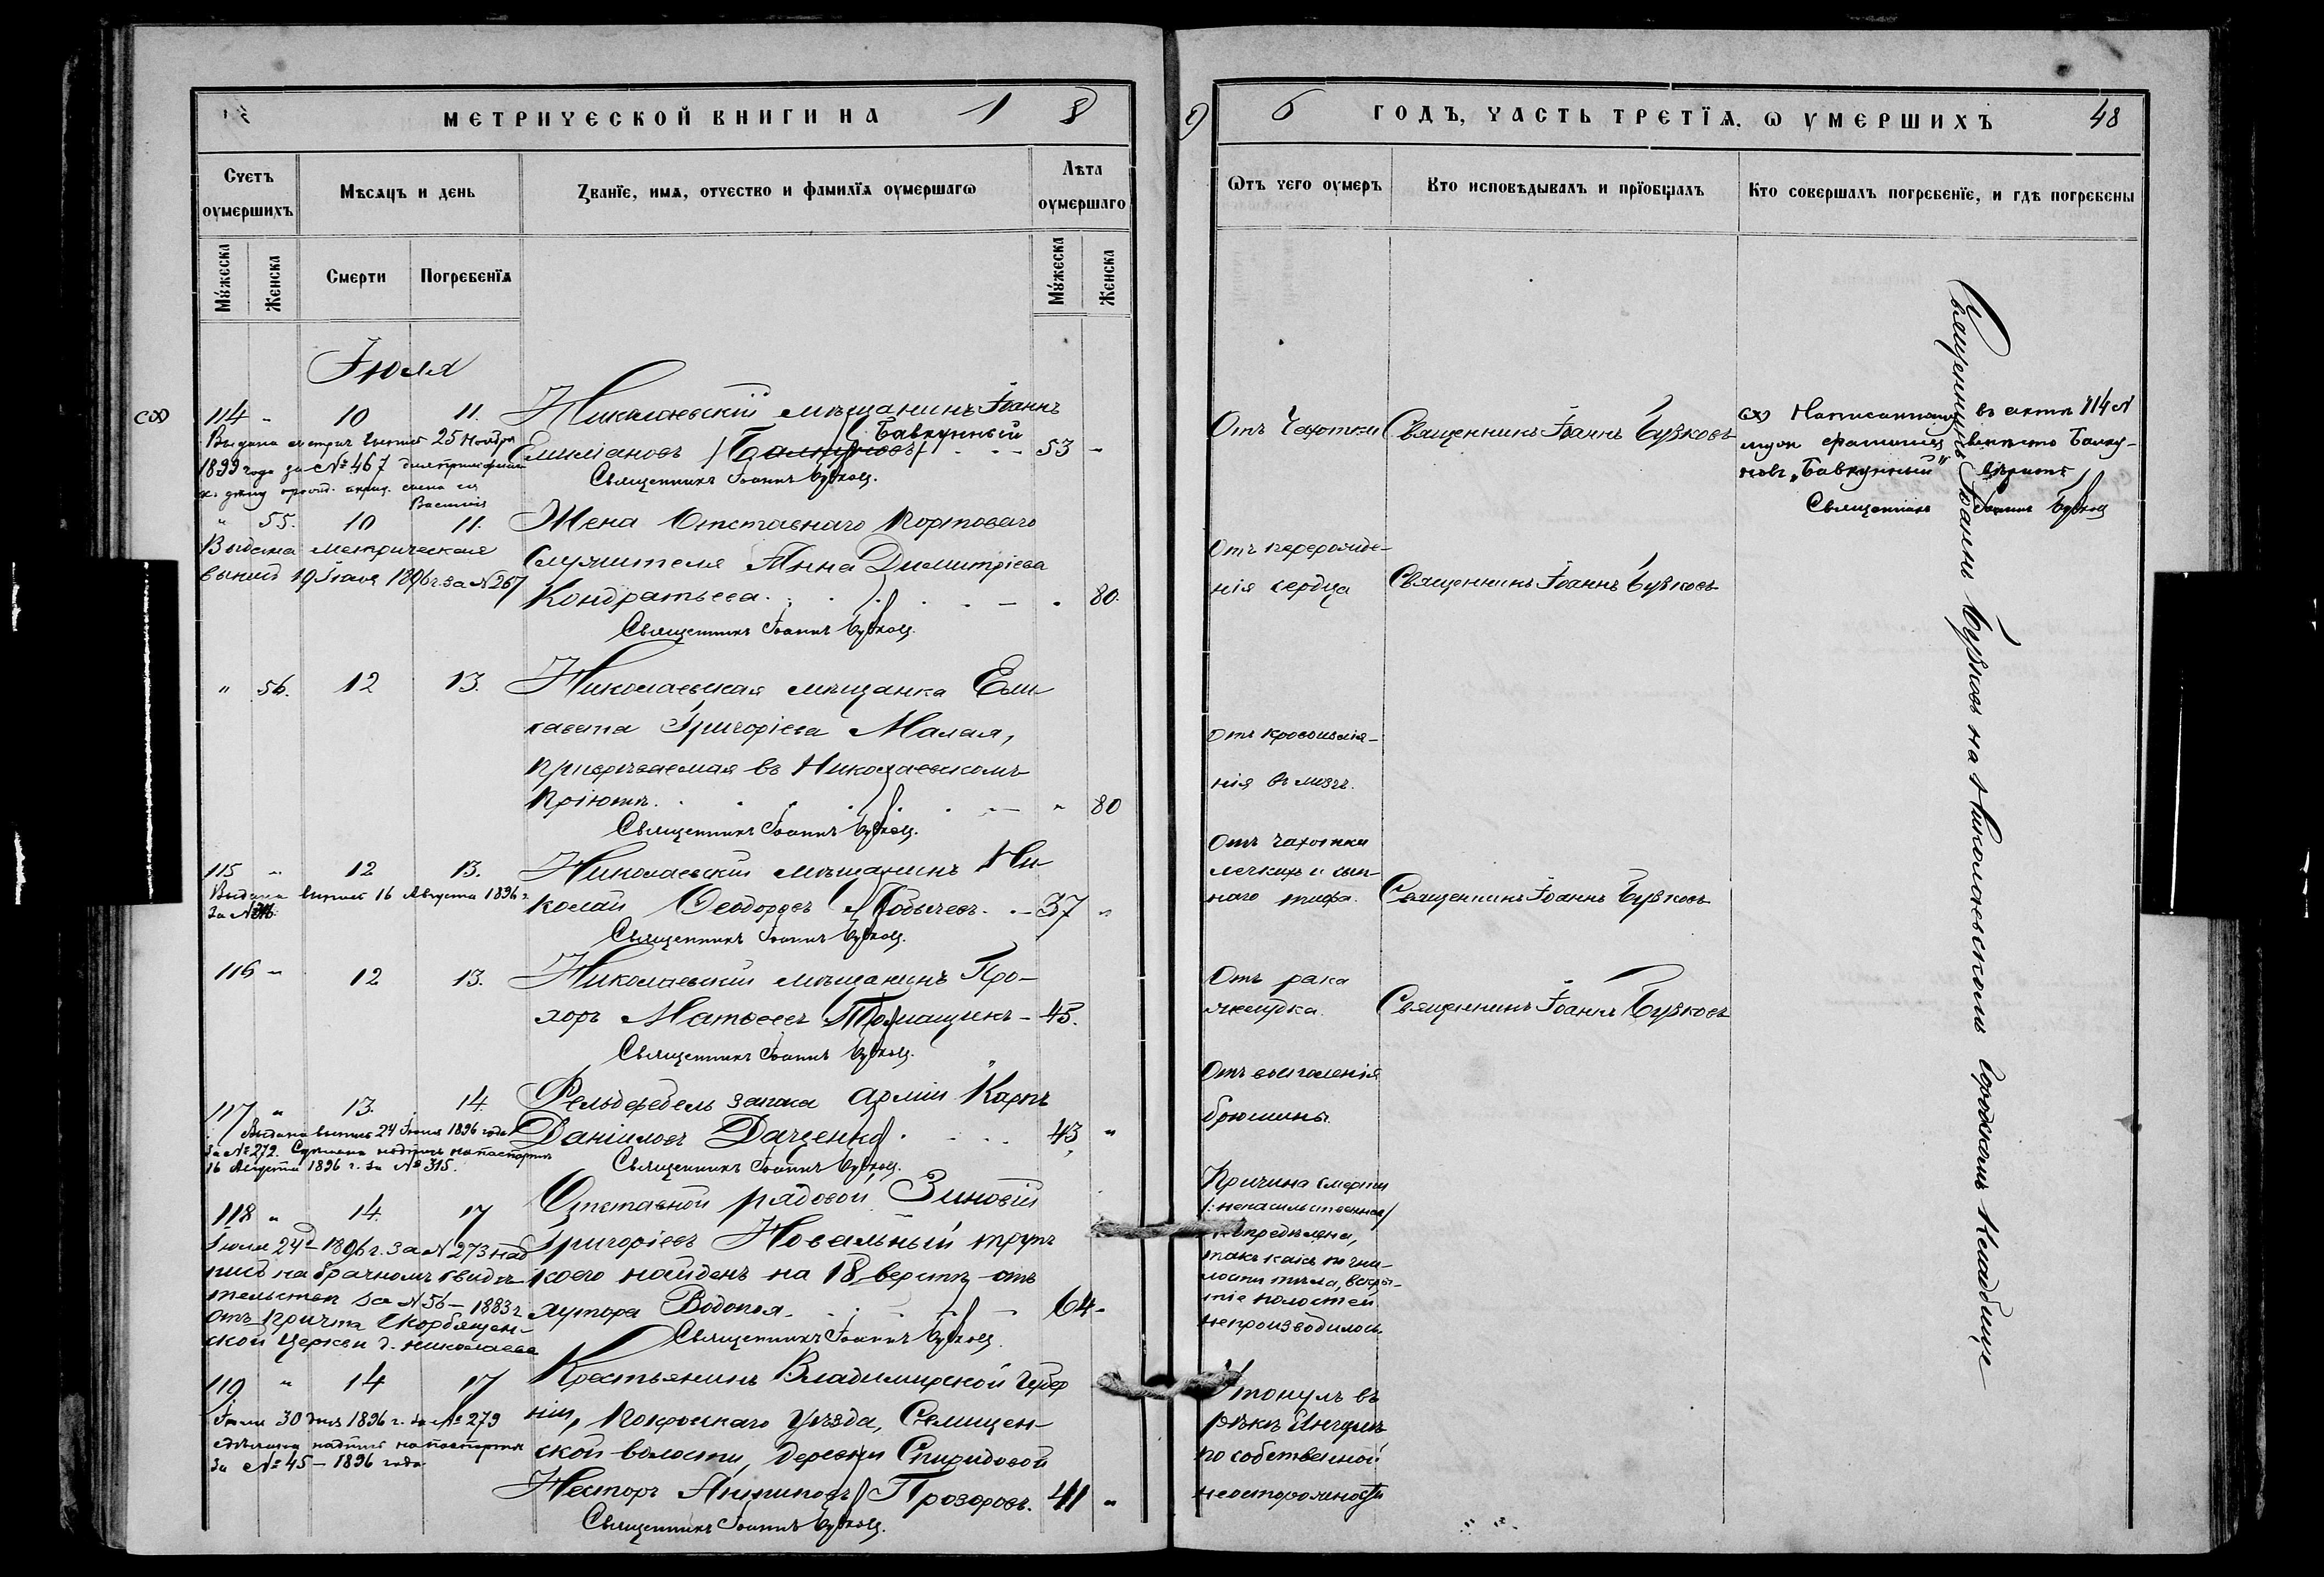 МЕТРИЧЕСКОЙ КНИГИ НА 1 8
Счетъ оумершихъ
Мѣсяцъ и день
Званїе, имѧ, отчество и фамилїѧ оумершагѡ
Лѣта оумершаго
Мужеска
Женска
Смерти
Погребенїѧ
Мужеска
Женска
Іюля
114 " 10 11. Николаевскій мѣщанинъ Іоаннъ
Бавкунный
Емиліановъ 53 "
Священникъ Іоаннъ Бузковъ.
Выдана метрич. выпись 25 Ноября
1899 года за № 467
Василія
" 55. 10 11. Жена Отставнаго Портоваго
Служителя Анна Димитріева
Кондратьева. " 80.
Священникъ Іоаннъ Бузковъ.
Выдана метрическая
выпись 19 Іюля 1896 г. за № 267
" 56. 12 13. Николаевская мѣщанка Ели
савета Григоріева Малая,
призрѣваемая въ Николаевскомъ
Пріютѣ. " 80
Священникъ Іоаннъ Бузковъ.
115 " 12 13. Николаевскій мѣщанинъ Ни
колай Ѳеодоровъ 37 "
Священникъ Іоаннъ Бузковъ.
Выдана выпись 16 Августа 1896 г.
за №
116 " 12 13. Николаевскій мѣщанинъ Про-
хоръ Матвеевъ Томащукъ 45.
Священникъ Іоаннъ Бузковъ.
117 " 13. 14. Фельдфебель запаса арміи Карпъ
Даніиловъ Даценко 43 "
Священникъ Іоаннъ Бузковъ.
Выдана выпись 24 Іюля 1896 года
за № 272. Сдѣлана надпись на паспортѣ
16 Августа 1896 г. за № 315.
118 " 14. 17 Отставной рядовой Зиновій
Григоріевъ Новальный трупъ
коего найденъ на 18 верстѣ отъ
хутора Водопоя. 64 "
Священникъ Іоаннъ Бузковъ.
Іюля 24 д. 1896 г. за № 273 над
пись на брачномъ свидѣ
тельствѣ за № 56 – 1883 г.
отъ причта Скорбящен-
ской Церкви г. Николаева
119 " 14 17 Крестьянинъ Владимирской губер
ніи, Покровскаго уѣзда, Селищен-
ской волости, деревни Спиридовой
Несторъ Антиповъ Прозоровъ. 41 "
Священникъ Іоаннъ Бузковъ.
Іюля 30 дня 1896 г. за № 279
сдѣлана надпись на паспортѣ
за № 45 – 1896 года.
9 6 ГОДЪ, ЧАСТЬ ТРЕТЇѦ, Ѡ УМЕРШИХЪ 48
Ѿтъ чего оумеръ
Кто исповѣдывалъ и прїобщалъ
Кто совершалъ погребенїе, и гдѣ погребены
Отъ Чахотки Священникъ Іоаннъ Бузковъ
Написанному въ актѣ 114 №
вмѣсто Балку-
новъ „Бавкунный" вѣрить
Священникъ Іоаннъ Бузковъ
Отъ перерожде-
нія сердца Священникъ Іоаннъ Бузковъ
Отъ кровоизлія-
нія въ мозгъ.
Отъ чахотки
легкихъ и сып-
наго тифа. Священникъ Іоаннъ Бузковъ
Отъ рака
желудка. Священникъ Іоаннъ Бузковъ
Отъ воспаленія
брюшины.
Причина смерти
/ненасильственная/
не опредѣлена,
такъ какъ по гни-
лости тѣла, вскры-
тіе полостей
непроизводилось.
Утонулъ въ
рѣкѣ Ингулѣ
по собственной
неосторожности
Священникъ Іоаннъ Бузковъ на Николаевскомъ городскомъ кладбищѣ